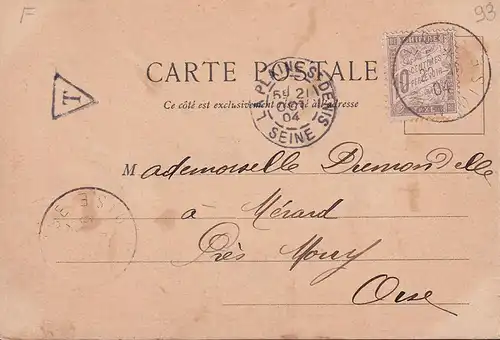 F
93
CARTE POSTALE
Ce côté est exclusivement réservé à l'adresse
T
LA PLAINE-ST-DENIS
OCT
04
SEINE
10 CENTIMES
À PERCEVOIR
04
Mademoiselle Dremondelle
à Mérard
Près Mouy
Oise